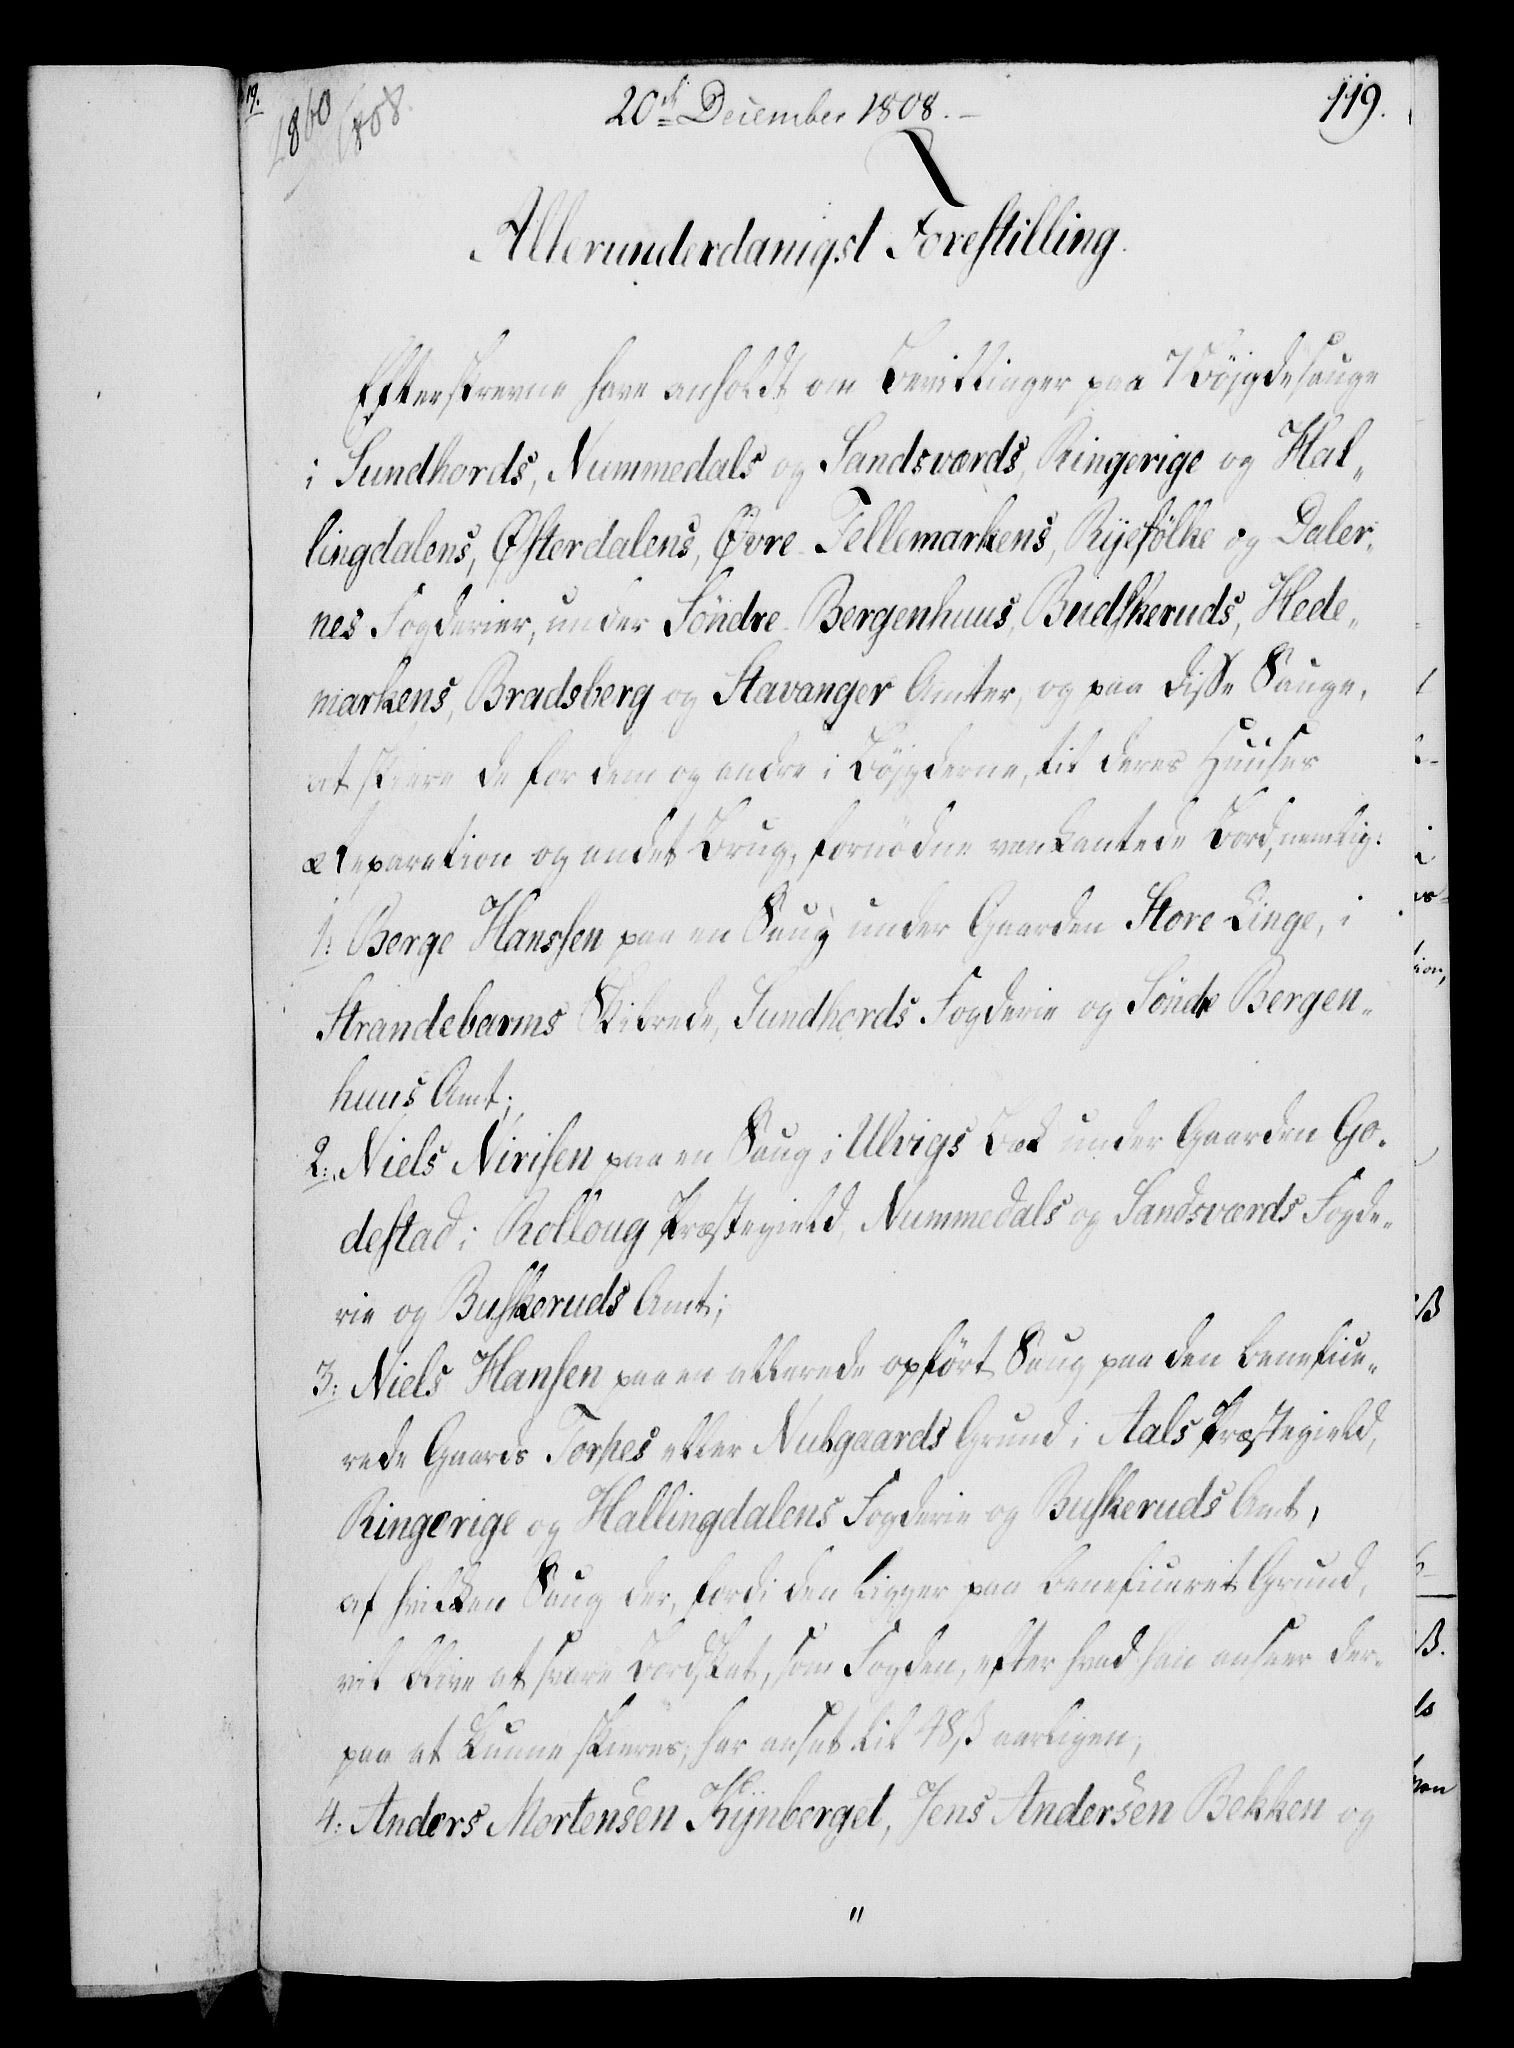 19.
1860
1808.
20de December 1808.
119.
Allerunderdanigst Forestilling.
Efterskrevne have anholdt om Bevillinger paa 7 Böjgdesauge
i Sundhords, Nummedals og Sandsværds, Ringerige og Hal„
lingdalens, Østerdalens, Øvre Tellemarkens, Ryefölke og Daler„
nes Fogderier, under Söndre Bergenhuus, Budskeruds, Hede„
markens, Bradsberg og Stavanger Amter, og paa disse Sauge,
at skiere de for dem og andre i Böjgderne, til deres Huuses
Reparation og andet Brug, fornödne vankantede Bord, nemlig:
1: Berge Hanssen paa en Saug under Gaarden Store Linge, i
Strandebarms Skibrede, Sundhords Fogderie og Söndre Bergen„
huus Amt;
2: Niels Nirisen paa en Saug i Ulvigs Bæk under Gaarden Go„
destad i Rolloug Præstegield, Nummedals og Sandsværds Fogde„
rie og Buskeruds Amt;
3: Niels Hansen paa en allerede opfört Saug paa den beneficee„
rede Gaards Torpes eller Nubgaards Grund i Aals Præstegield,
Ringerige og Hallingdalens Fogderie og Buskeruds Amt,
af hvilken Saug der, fordi den ligger paa beneficeret Grund,
vil blive at svare Bordskat, som Fogden, efter hvad han anseer der„
paa at kunne skieres, har ansat til 48 ß aarligen;
4: Anders Mortensen Kynberget, Jens Andersen Bekken og
"